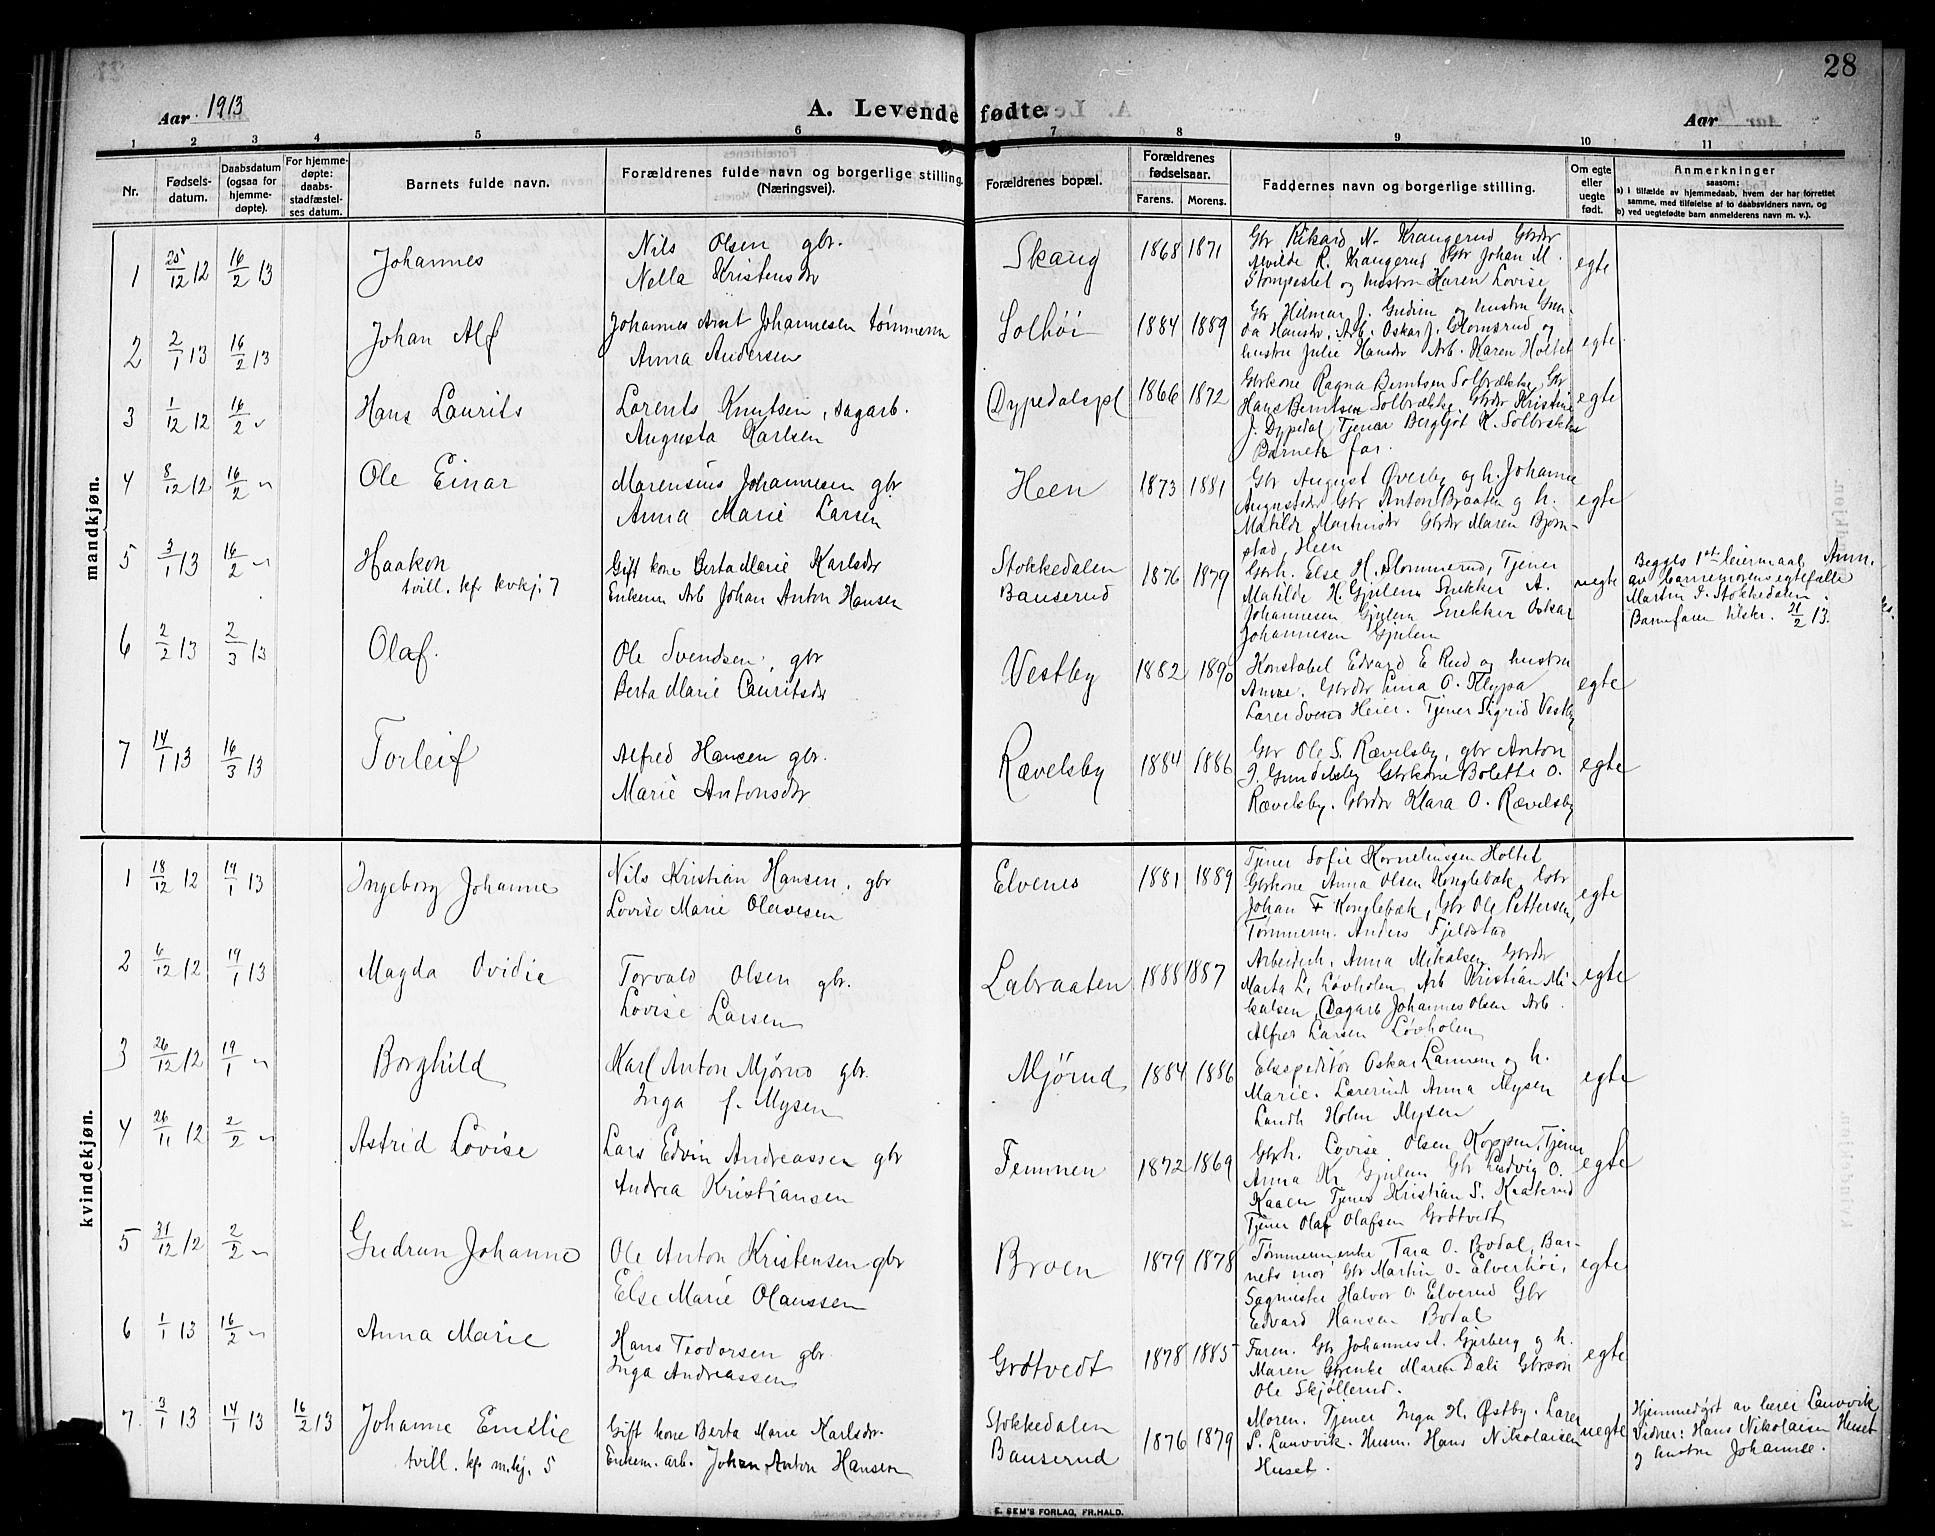 28
Aar 1913
A. Levende fødte.
Aar
1 2 3 4 5 6 7 8 9 10 11
Nr.
Fødsels-
datum.
Daabsdatum
(ogsaa for
hjemme-
døpte).
For hjemme-
døpte:
daabs-
stadfæstel-
ses datum.
Barnets fulde navn.
Forældrenes fulde navn og borgerlige stilling.
(Næringsvei).
Forældrenes bopæl.
Forældrenes
fødselsaar.
Farens. Morens.
Faddernes navn og borgerlige stilling.
Om egte
eller
uegte
født.
Anmerkninger
saasom:
a) i tilfælde av hjemmedaab, hvem der har forrettet
samme, med tilføielse af to daabsvidners navn, og
b) ved uegtefødte barn anmelderens navn m. v.).
mandkjøn.
1 25/12 12 16/2 13 Johannes
Nils Olsen gbr.
Nella Kristensdr
Skaug 1868 1871
Gbr Rikard N. Krangerud Gbrdr
Alvilde R. Krangerud Gbr Johan M.
Stompestet og hustru Karen Lovise
egte
2 2/1 13 16/2 13 Johan Alf
Johannes Arnt Johannesen tømmerm
Anna Andersen
Solhöi 1884 1889
Gbr Hilmar J. Gudim og hustru Gun-
da Hansdr, Arb. Oskar J. Glomsrud og
hustru Julie Hansdr Arb. Karen Holtet
egte.
3 1/12 12 16/2 " Hans Laurits
Lorents Knutsen, sagarb.
Augusta Karlsen
Dypedalspl 1866 1872
Gbrkone Ragna Berntsen Solbrække, Gbr
Hans Berntsen Solbrække Gbrdr Kristine
J. Dypedal Tjener Bergljot K. Solbrække
Barnets far.
egte
4 8/12 12 16/2 " Ole Einar
Marensius Johannesen gbr
Anna Marie Larsen
Heen 1873 1881
Gbr August Øverby og h. Johanne
Augustsdr Gbr Anton Braaten og h.
Matilde Martinsdr Gbrdr Maren Bjørn-
stad, Heen
egte
5 3/1 13 16/2 " Haakon
tvill. kfr kvkj. 7
Gift kone Berta Marie Karlsdr
Enkem Arb Johan Anton Hansen
Stokkedalen
Bauserud
1876 1879
Gbrh. Else H. Slommerud, Tjener
Matilde H Gjulem Snekker A.
Johannesen Gjulem Snekker Oskar
Johannesen Gjulem
uegte
Begges 1st leiermaal Anm.
av barnemorens egtefælle
Martin J. Stokkedalen.
Barnefaren tilskr. 21/2 13.
6 2/2 13 2/3 13 Olaf.
Ole Svendsen, gbr
Berta Marie Lauritsdr
Vestby 1882 1890
Konstabel Edvard E Rud og hustru
Anna. Gbrdr Lina O. Kleypa
Lærer Svend Heier. Tjener Sigrid Vestby
egte
7 14/1 13 16/3 13 Torleif
Alfred Hansen gbr.
Marie Antonsdr
Rævelsby 1884 1886
Gbr Ole S. Rævelsby, gbr Anton
J. Gundelsby Gbrkone Bolette O.
Rævelsby. Gbrdr Klara O. Rævelsby
egte
kvindekjøn.
1 18/12 12 19/1 13 Ingeborg Johanne
Nils Kristian Hansen, gbr
Lovise Marie Olavesen
Elvenes 1881 1889
Tjener Sofie Korneliussen Holtet
Gbrkone Anna Olsen Konglebæk, Gbr
Johan F Konglebæk, Gbr Ole Pettersen,
Tømmerm. Anders Fjeldstad
egte
2 6/12 12 19/1 13 Magda Ovidia
Torvald Olsen gbr.
Lovise Larsen
Labraaten 1888 1887
Arbeidsk. Anna Mikalsen Gbrdr
Marta L. Løvholen, Arb Kristian Mi-
kalsen, Dagarb Johannes Olsen Arb.
Alfred Larsen Løvholen
egte
3 26/12 12 19/1 " Borghild
Karl Anton Mjørud gbr.
Inga f. Mysen
Mjørud 1884 1886
Ekspeditør Oskar Lannem og h.
Marie. Lærerinde Anna Mysen
Landh Holm Mysen
egte
4 26/11 12 2/2 " Astrid Lovise
Lars Edvin Andreassen gbr
Andrea Kristiansen
Femnen 1872 1869
Gbrh. Lovise Olsen Koppen, Tjener
Anna Kr. Gjulem Gbr Ludvig O.
Kaaen Tjener Kristian S. Kraterud
Tjener Olaf Olafsen Grøtvedt
egte
5 31/12 12 2/2 " Gudrun Johanne
Ole Anton Kristensen gbr
Else Marie Olaussen
Broen 1879 1878
Tømmerm enke Tara O. Bodal, Bar-
nets mor Gbr Martin O. Elverhöi,
Sagmester Halvor O. Elverud Gbr
Edvard Hansen Bodal
egte
6 1/1 13 16/2 " Anna Marie
Hans Teodorsen gbr.
Inga Andreassen
Grøtvedt 1878 1885
Faren. Gbr Johannes A. Gjerberg og h.
Maren Gbrenke Maren Dali Gbrsøn
Ole Skjøllerud.
egte
7. 3/1 13 14/1 13 16/2 13 Johanne Emelie
tvill. kfr m.kj. 5
Gift kone Berta Marie Karlsdr.
Enkem. arb. Johan Anton Hansen
Stokkedalen
Bauserud
1876 1879
Moren. Tjener Inga H. Østby. Lærer
S. Lauvvik. Husm. Hans Nikolaisen
Huset.
uegte
Hjemmedøpt av lærer Lauvvik
Vidner: Hans Nikolaisen Huset
og hustru Johanne.
E. SEM'S FORLAG, FR.HALD.